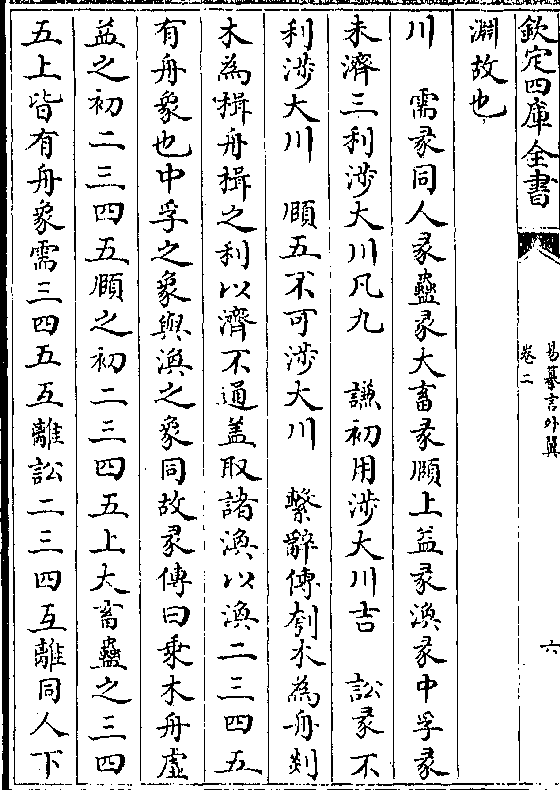 欽定四庫全書
易纂言外翼
卷二
六
淵故也
川　需彖同人彖蠱彖大畜彖頤上益彖渙彖中孚彖
未濟三利涉大川凡九　謙初用涉大川吉　訟彖不
利涉大川　頤五不可涉大川　繫辭傳刳木為舟剡
木為楫舟楫之利以濟不通蓋取諸渙以渙二三四五
有舟象也中孚之象與渙之象同故彖傳曰乘木舟虛
益之初二三四五頤之初二三四五上大畜蠱之三四
五上皆有舟象需三四五互離訟二三四互離同人下